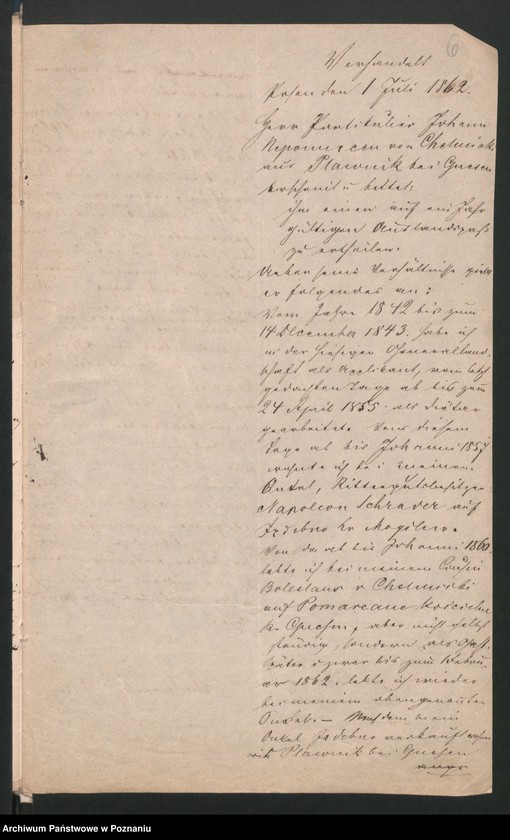 6
Verhandelt
Posen den 1 Juli 1862.
Herr Partikulier Johann
Nepomucen von Chelmicki
aus Plawnik bei Gnesen
erscheint u bittet:
ihm einen auf ein Jahr
gültigen Auslandspaß
zu ertheilen.
Ueber seine Verhältnisse
er folgendes an:
Vom Jahre 1842 bis zum
14 December 1843. habe ich
in der hiesigen General Land-
schaft als Applikant, vom letzt
gedachten Tage ab bis zum
24 April 1855. als Diätar
gearbeitet. Von diesem
Tage ab bis Johanni 1857
wohnte ich bei meinem
Onkel, Rittergutsbesitzer
Napoleon Schrader auf
Izdebno Kr Mogilno.
Von da ab bis Johanni 1860
lebte ich bei meinem Cousin
Boleslaus v Chelmicki
auf Pomarzane
Kr Gnesen, aber nicht selbst
ständig, sondern als Gast.
Später u zwar bis zum Febru-
ar 1862. lebte ich wieder
bei meinem obengenannten
Onkel. — Nachdem mein
Onkel Izdebno verkauft
Plawnik bei Gnesen
Archiwum Państwowe w Poznaniu